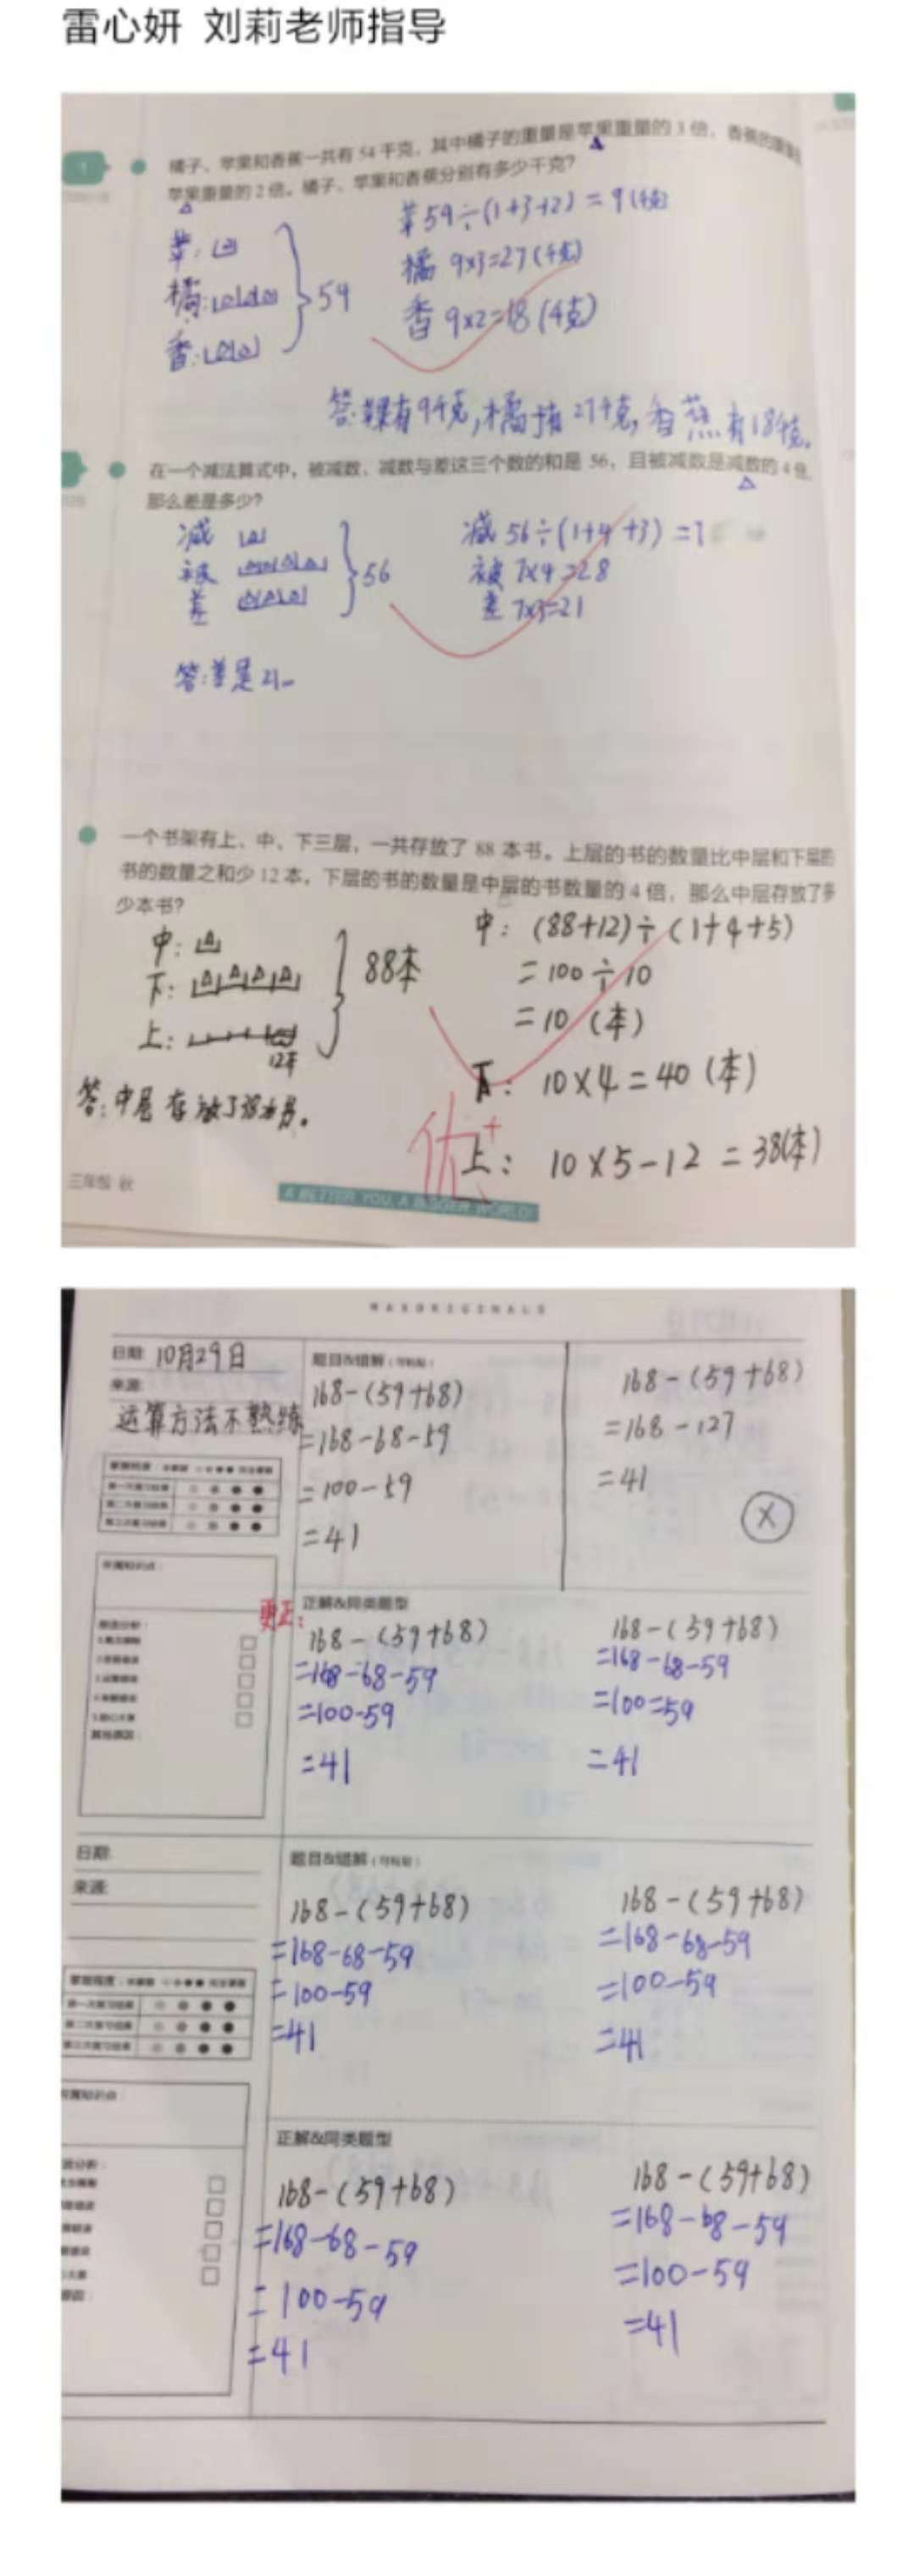 雷心妍 刘莉老师指导
1
橘子、苹果和香蕉一共有 54 千克，其中橘子的重量是苹果重量的 3 倍，香蕉的重量是
苹果重量的 2 倍。橘子、苹果和香蕉分别有多少千克？
苹:
橘:
香:
54
苹 54÷(1+3+2) = 9(千克)
橘 9×3=27(千克)
香 9×2=18(千克)
答:苹果有9千克,橘子有27千克,香蕉有18千克.
在一个减法算式中，被减数、减数与差这三个数的和是 56，且被减数是减数的 4 倍，
那么差是多少？
减
被
差
56
减 56÷(1+4+3)=7
被 7×4=28
差 7×3=21
答:差是21.
一个书架有上、中、下三层，一共存放了 88 本书。上层的书的数量比中层和下层的
书的数量之和少 12 本，下层的书的数量是中层的书数量的 4 倍，那么中层存放了多
少本书？
中:
下:
上:
12本
88本
中: (88+12)÷(1+4+5)
=100÷10
=10 (本)
下: 10×4=40(本)
上: 10×5-12=38(本)
答:中层存放了10本书。
优+
三年级 秋
A BETTER YOU, A BIGGER WORLD!
日期: 10月29日
来源:
运算方法不熟练
题目&错解
168-(59+68)
=168-68-59
=100-59
=41
168-(59+68)
=168-127
=41
×
更正:
正解&同类题型
168-(59+68)
=168-68-59
=100-59
=41
168-(59+68)
=168-68-59
=100=59
=41
日期:
来源:
题目&错解
168-(59+68)
=168-68-59
=100-59
=41
168-(59+68)
=168-68-59
=100-59
=41
正解&同类题型
168-(59+68)
=168-68-59
=100-59
=41
168-(59+68)
=168-68-59
=100-59
=41